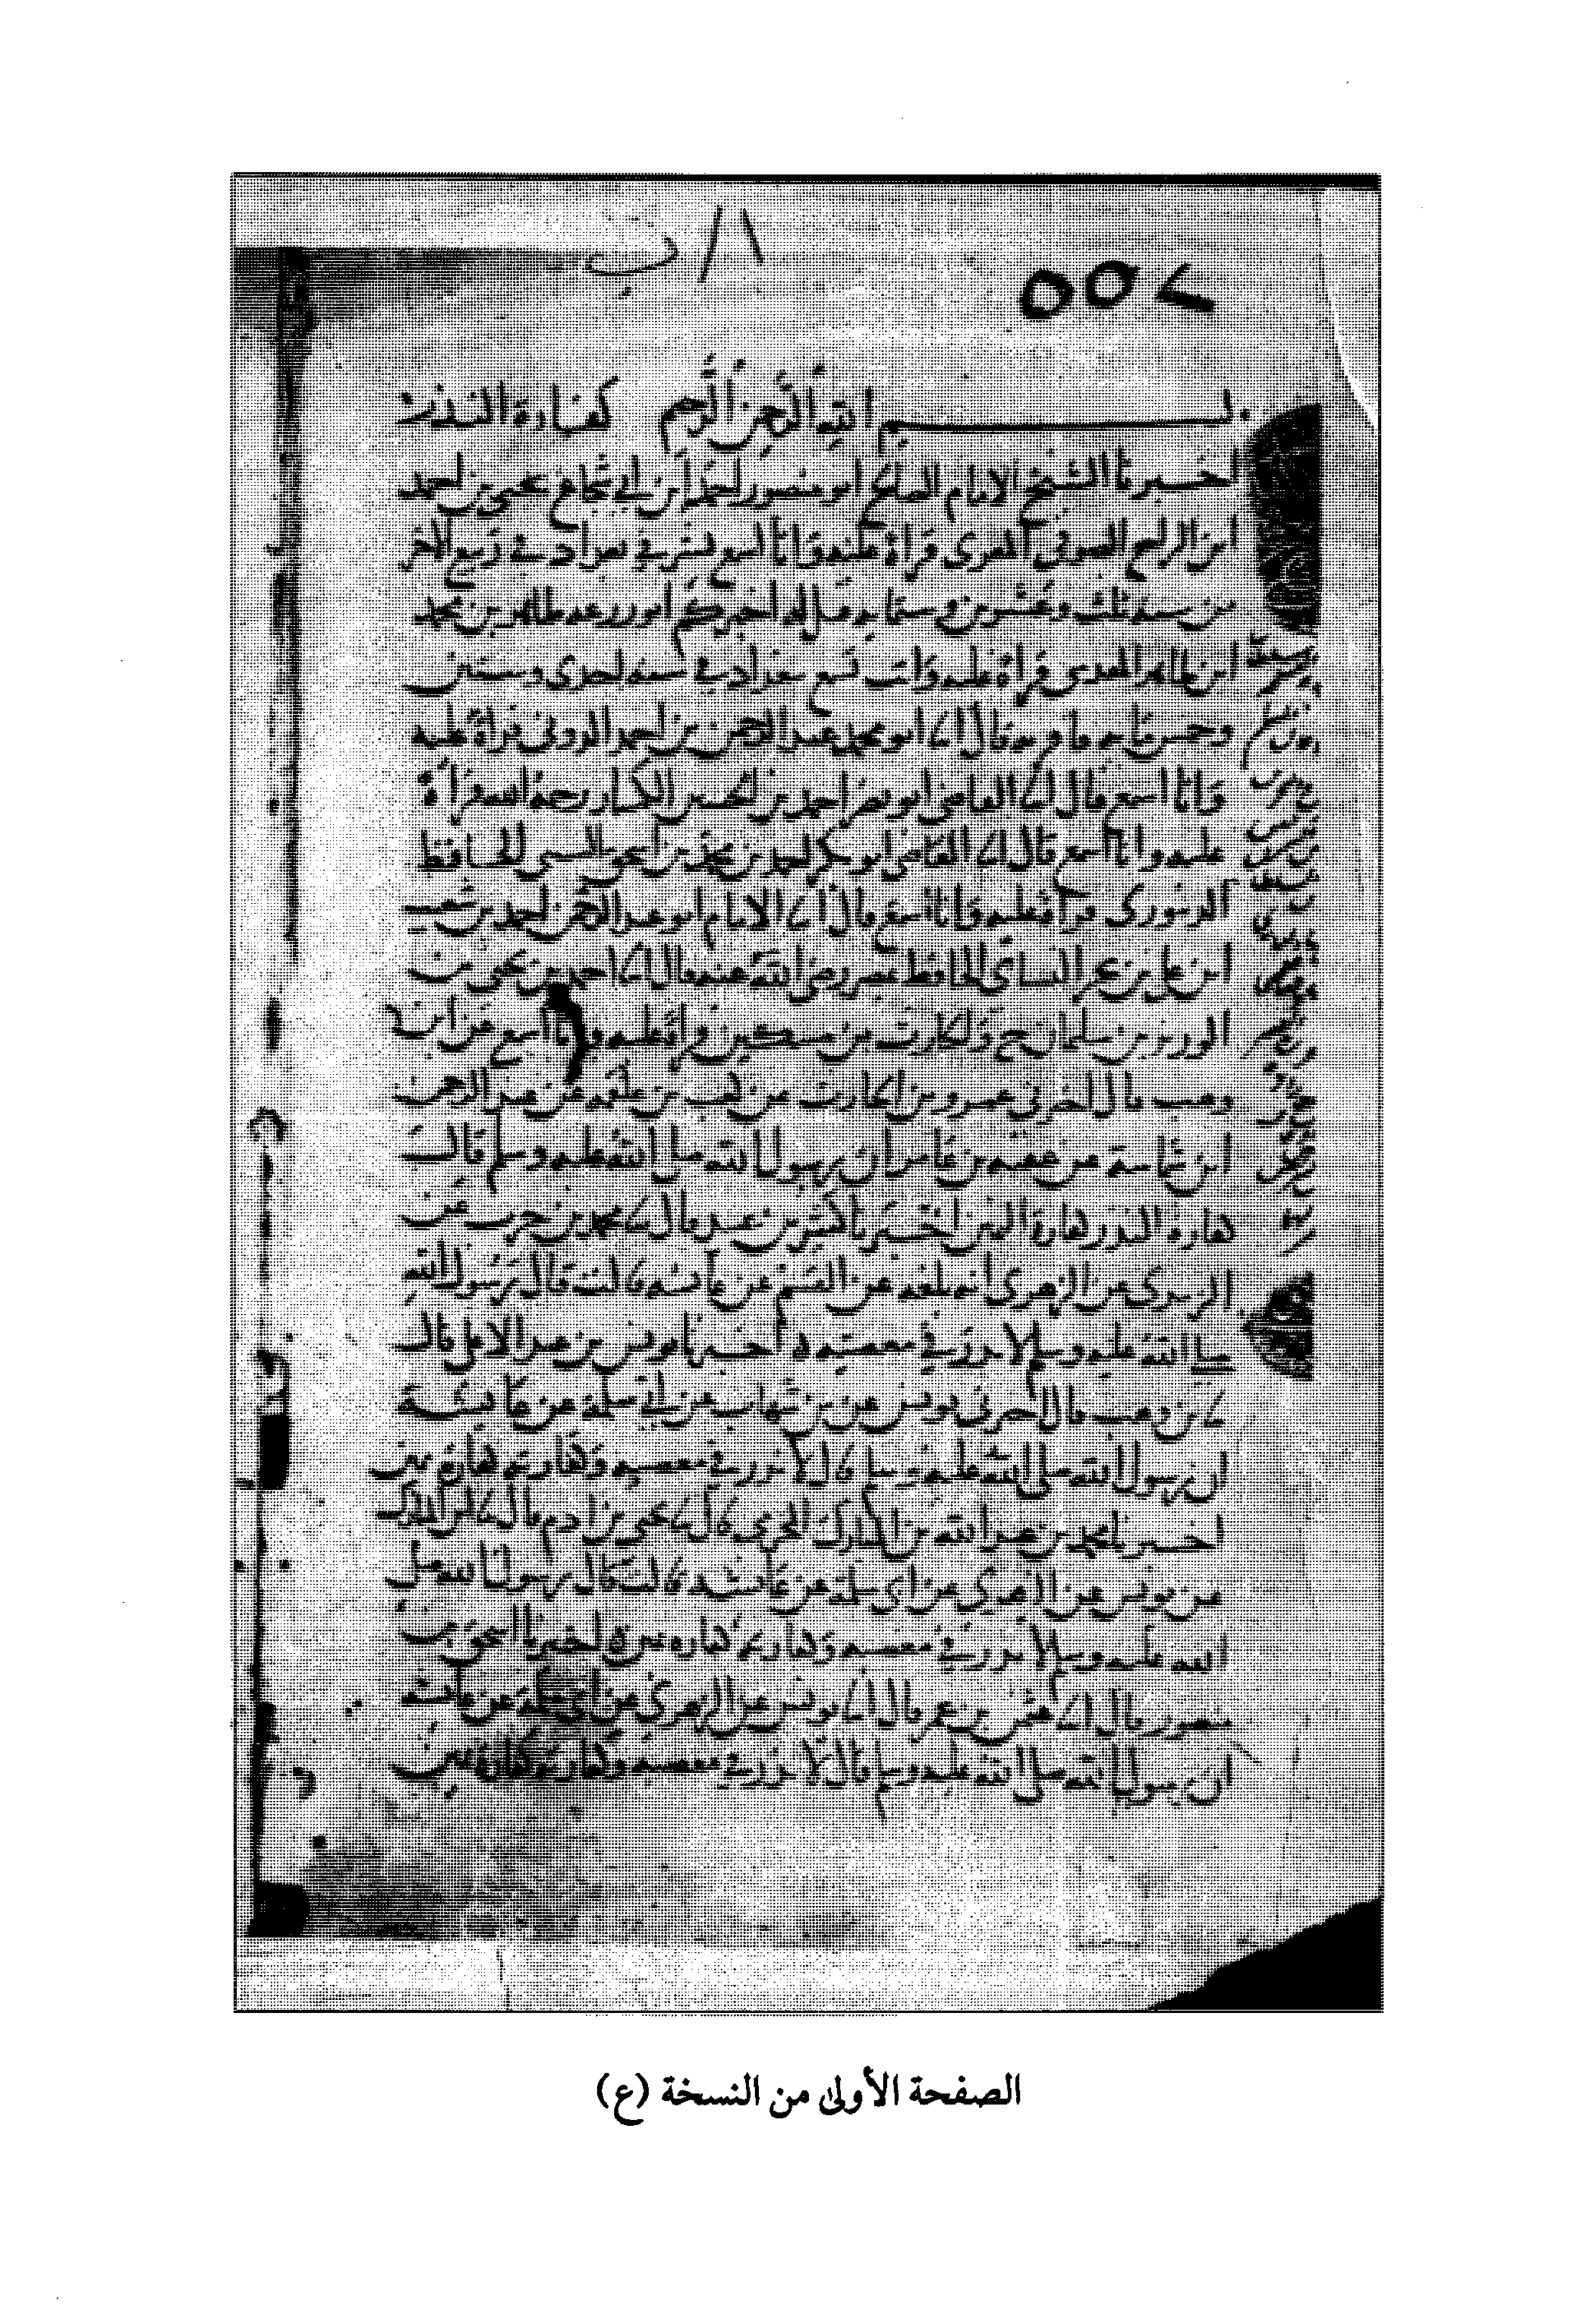 ١/ب
٧٥٥
بسم الله الرحمن الرحيم كفارة النذر
اخبرنا الشيخ الامام الصالح ابو منصور احمد بن ابي شجاع يحيى بن احمد
ابن الصوفي المقرى قراة عليه وانا اسمع في بغداد في ربيع الاخر
من سنة ثلث وعشرين وستمايه قال له اخبركم ابو زرعه طاهر بن محمد
ابن طاهر المقدسي قراة عليه وانت تسمع ببغداد في سنه احدى وستين
وخمس مايه قال انا ابو محمد عبد الرحمن بن احمد الدوني قراة عليه
وانا اسمع قال انا القاضي ابو نصر احمد بن الحسين الكسار رحمه الله قراة
عليه وانا اسمع قال انا القاضي ابو بكر احمد بن محمد بن اسحق السني الحافظ
الدينوري قراة عليه وانا اسمع قال انا الامام ابو عبد الرحمن احمد بن شعيب
ابن علي بن بحر النسائي الحافظ بمصر رضي الله عنه قال انا احمد بن يحيى بن
الوزير بن سليمان ح والحارث بن مسكين قراة عليه وانا اسمع عن ابن
وهب قال اخبرني عمرو بن الحارث عن كعب بن علقمه عن عبد الرحمن
ابن شماسة عن عقبه بن عامر ان رسول الله صلى الله عليه وسلم قال
كفاره النذر كفارة اليمين اخبرنا كثير بن عبيد قال نا محمد بن حرب عن
الزبيدي عن الزهري انه بلغه عن القسم عن عائشه قالت قال رسول الله
صلى الله عليه وسلم لا نذر في معصيه ه اخبرنا يونس بن عبد الاعلى قال
نا ابن وهب قال اخبرني يونس عن بن شهاب عن ابي سلمة عن عائشة
ان رسول الله صلى الله عليه وسلم قال لا نذر في معصيه وكفارته كفارة يمين
اخبرنا محمد بن عبد الله بن المبارك المخرمي قال نا يحيى بن ادم قال نا ابن المبارك
عن يونس عن الزهري عن ابي سلمة عن عائشه قالت قال رسول الله صلى
الله عليه وسلم لا نذر في معصيه وكفارته كفاره يمين ه اخبرنا اسحق بن
منصور قال انا عثمن بن عمر قال انا يونس عن الزهري عن ابي سلمة عن عائشه
ان رسول الله صلى الله عليه وسلم قال لا نذر في معصيه وكفارته كفارة يمين
الصفحة الأولى من النسخة (ع)